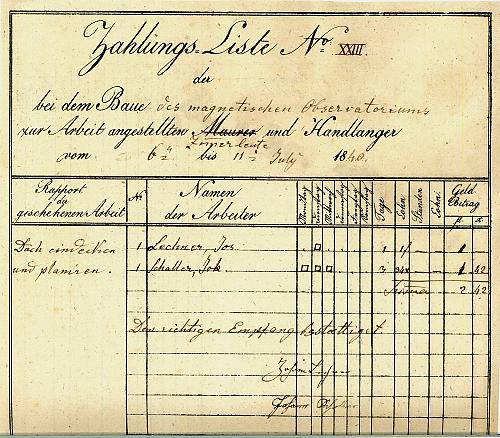 Zahlungs=Liste No XXIII.
der
bei dem Baue des magnetischen Observatoriums
zur Arbeit angestellten Maurer und Handlanger
Zimerleute
vom 6ten bis 11ten July 1840.
Rapport der geschehenen Arbeit
Nr
Namen der Arbeiter
Montag
Dienstag
Mittwoch
Donnerstag
Freytag
Samstag
Tage
Lohn
Stunden
Lohn
Geld Betrag
fl. x
Dach eindecken 1 Lechner, Jos. 1 1/- 1
und planiren. 1 Schaller, Joh 3 34x 1 42
Summa 2 42
Den richtigen Empfang bestättiget